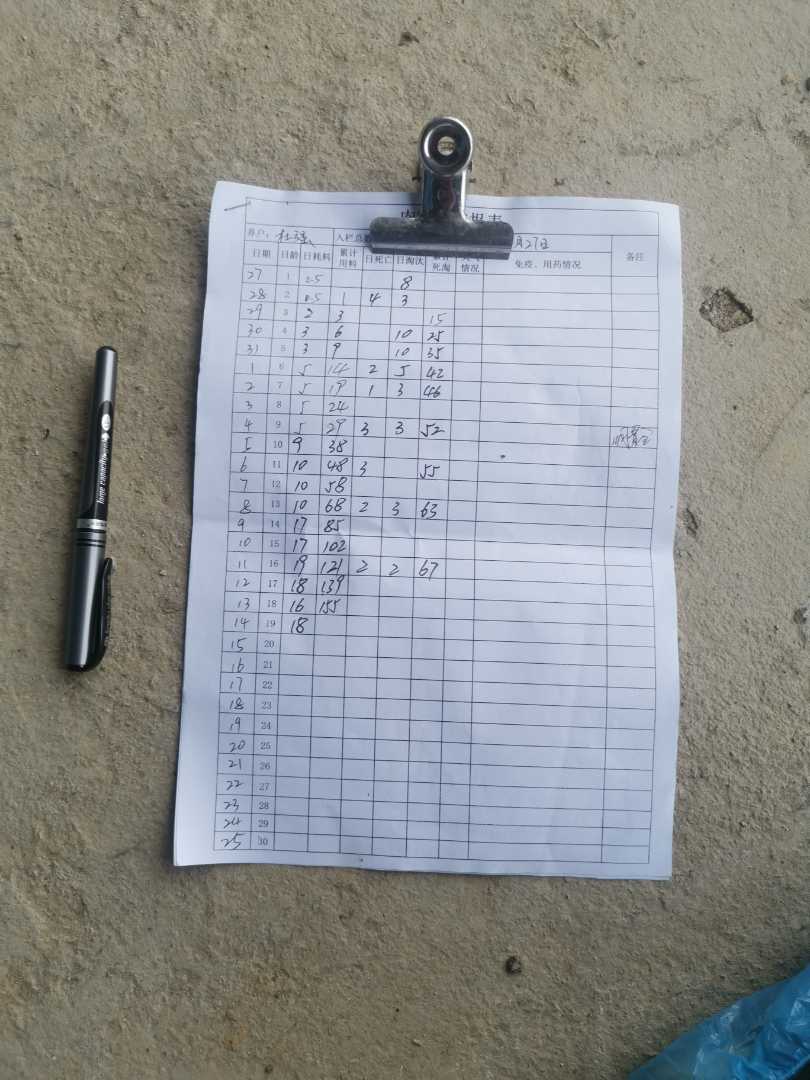 报表
养户： 入栏总 月27日
日期 日龄 日耗料 累计用料 日死亡 日淘汰 累计死淘 情况 免疫、用药情况 备注
27 1 0.5 8
28 2 0.5 1 4 3
29 3 2 3 15
30 4 3 6 10 25
31 5 3 9 10 35
1 6 5 14 2 5 42
2 7 5 19 1 3 46
3 8 5 24
4 9 5 29 3 3 52
5 10 9 38
6 11 10 48 3 55
7 12 10 58
8 13 10 68 2 3 63
9 14 17 85
10 15 17 102
11 16 19 121 2 2 67
12 17 18 139
13 18 16 155
14 19 18
15 20
16 21
17 22
18 23
19 24
20 25
21 26
22 27
23 28
24 29
25 30